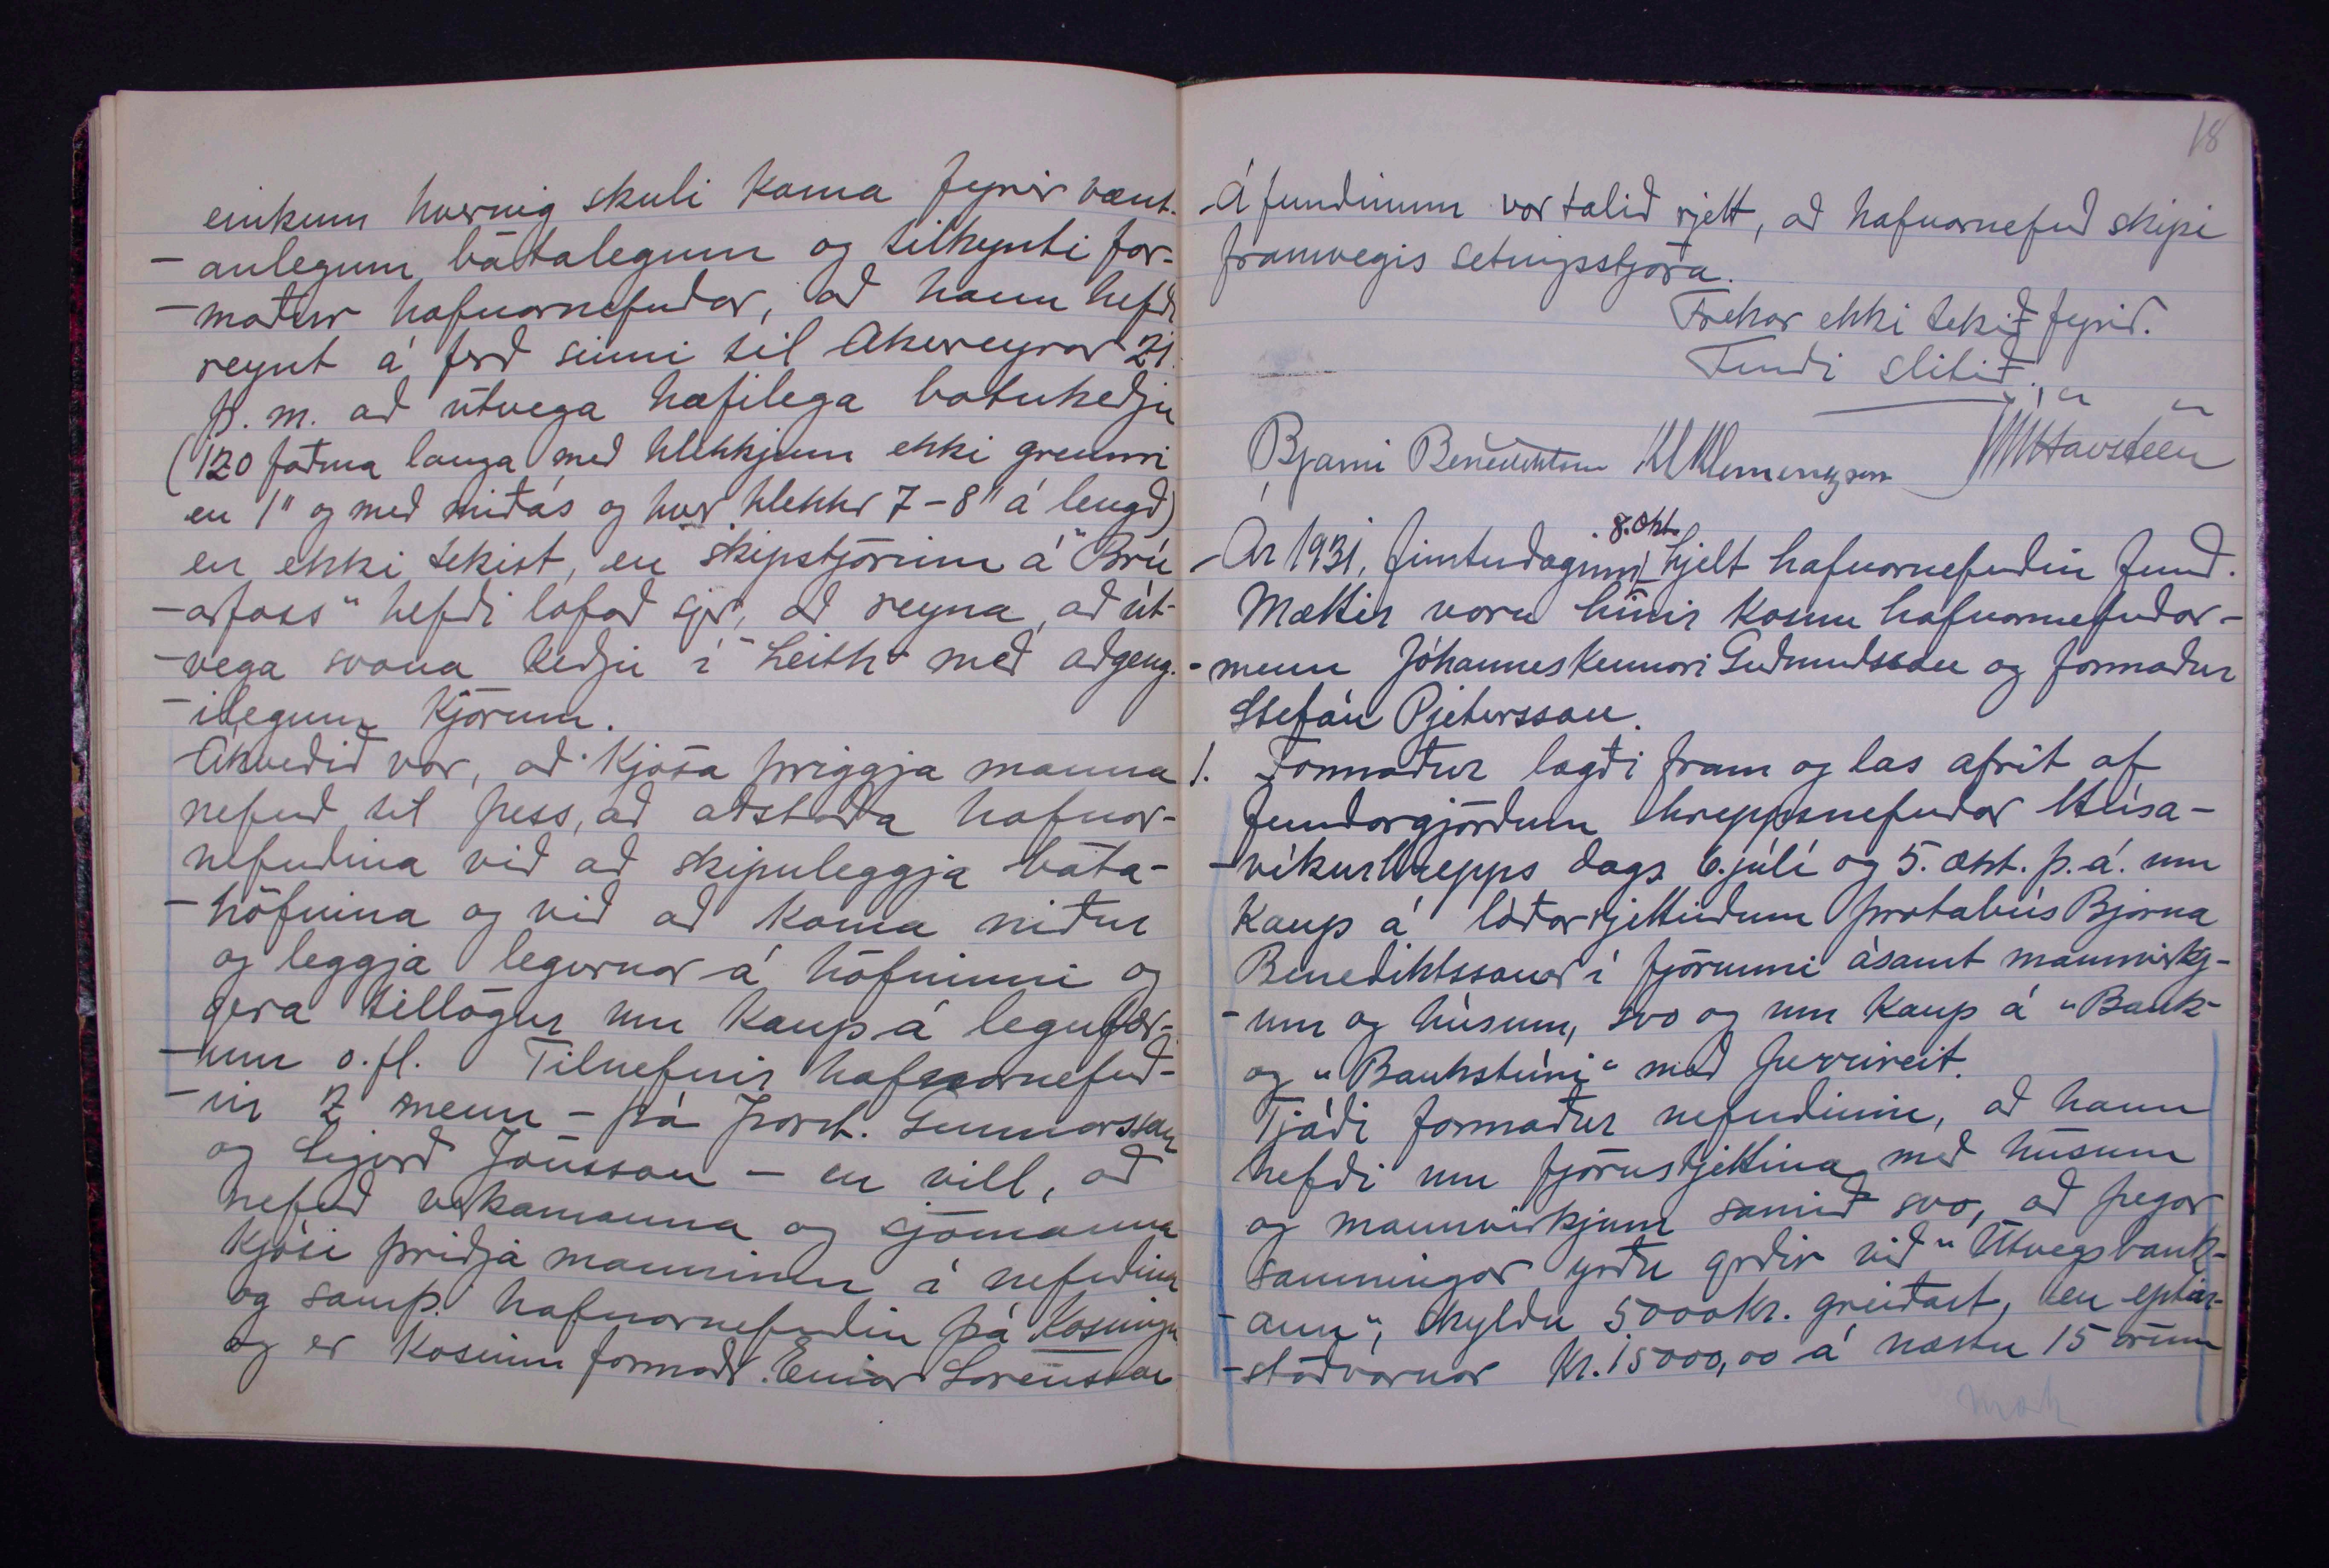 einkum hvernig skuli koma fyrir vænt-
-anlegum bátalegum og tilkynti for-
-maður hafnarnefndar, að hann hefði
reynt á ferð sinni til Akureyrar 21.
þ. m. að útvega hæfilega botnkeðju
(120 faðma langa með hlekkjum ekki grennri
en 1" og með miðás og hver hlekkr 7-8" á lengd)
en ekki tekist, en skipstjórinn á "Brú
-arfoss" hefði lofað sjer, að reyna, að út-
-vega svona keðju í "Leith" með aðgeng-
-ilegum kjörum.
Ákveðið var, að kjósa þriggja manna
nefnd til þess, að aðstoða hafnar-
nefndina við að skipuleggja báta-
-höfnina og við að koma niður
og leggja legurnar á höfninni og
gera tillögur um kaup á legufær-
-um o.fl. Tilnefnir hafnarnefnd-
-in 2 menn - þá Þorst. Gunnarsson
og Sigurð Jónsson - en vill, að
nefnd verkamanna og sjómanna
kjósi þriðja manninn í nefndina
og samþ. hafnarnefndin þá kosningu
og er kosinn formaðr. Einar Sörensson
18
Á fundinum var talið rjett, að hafnarnefnd skipi
framvegis setningsstjóra.
Frekar ekki tekið fyrir.
Fundi slitið.
Bjarni Benediktsson Kl Klemenzson JHavsteen
8. okt.
Ár 1931, fimtudaginn hjelt hafnarnefndin fund.
Mættir voru hinir kosnu hafnarnefndar-
-menn Jóhannes kennari Guðmundsson og formaður
Stefán Pjetursson.
1. Formaður lagði fram og las afrit af
fundargjörðum hreppsnefndar Húsa-
-víkurhrepps dags 6. júlí og 5. okt. þ.á. um
kaup á lóðarrjettindum þrotabús Bjarna
Benediktssonar í fjörunni ásamt mannvirkj-
-um og húsum, svo og um kaup á "Bauk-
og "Baukstúni" með þurrireit.
Tjáði formaður nefndinni, að hann
hefði um fjörurjettina með húsum
og mannvirkjum samið svo, að þegar
samningar yrðu gerðir við "Útvegsbank-
-ann", skyldu 5000 kr. greiðast, en eptir-
-stöðvarnar kr. 15000,00 á næstu 15 árum